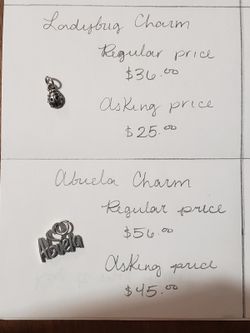 Ladybug Charm
Regular price
$36.00
Asking price
$25.00
Abuela Charm
Abuela
Regular price
$56.00
Asking price
$45.00